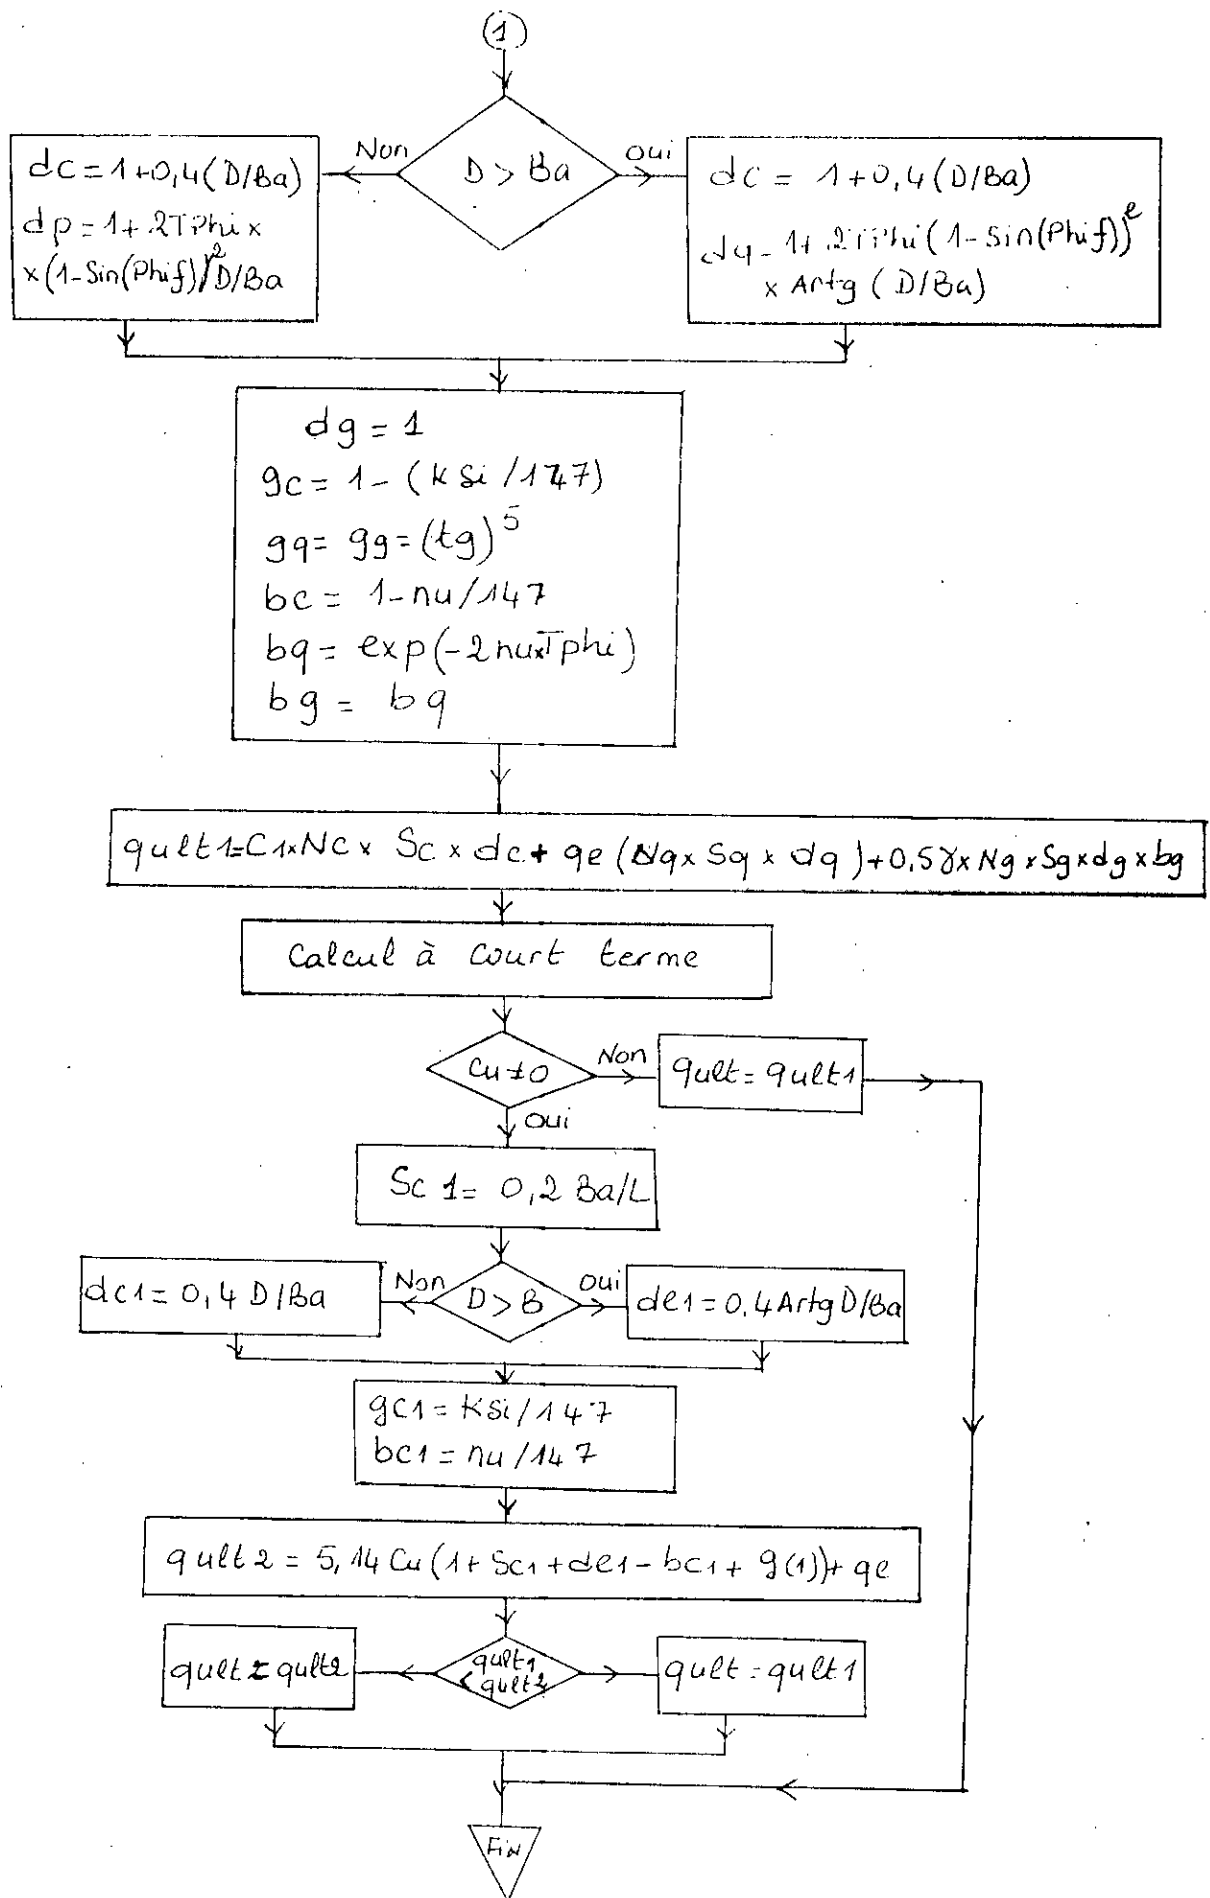 1
D > Ba
Non
oui
dc = 1+0,4(D/Ba)
dp = 1+2TPhi ×
×(1-Sin(Phif))² D/Ba
dc = 1+0,4(D/Ba)
dq - 1+2TPhi(1-Sin(Phif))²
× Artg (D/Ba)
dg = 1
gc = 1-(kSi/147)
gq = gg = (tg)⁵
bc = 1-nu/147
bq = exp(-2nu×Tphi)
bg = bq
qult1=C1×Nc× Sc×dc+ qe(Nq×Sq×dq)+0,5γ×Ng×Sg×dg×bg
Calcul à court terme
Cu≠0
Non
qult = qult1
oui
Sc1 = 0,2 Ba/L
D > B
Non
oui
dc1 = 0,4 D/Ba
de1 = 0,4 Artg D/Ba
gc1 = kSi/147
bc1 = nu/147
qult2 = 5,14 Cu(1+Sc1+de1-bc1+g(1))+qe
qult1
< qult2
qult = qult2
qult = qult1
FIN